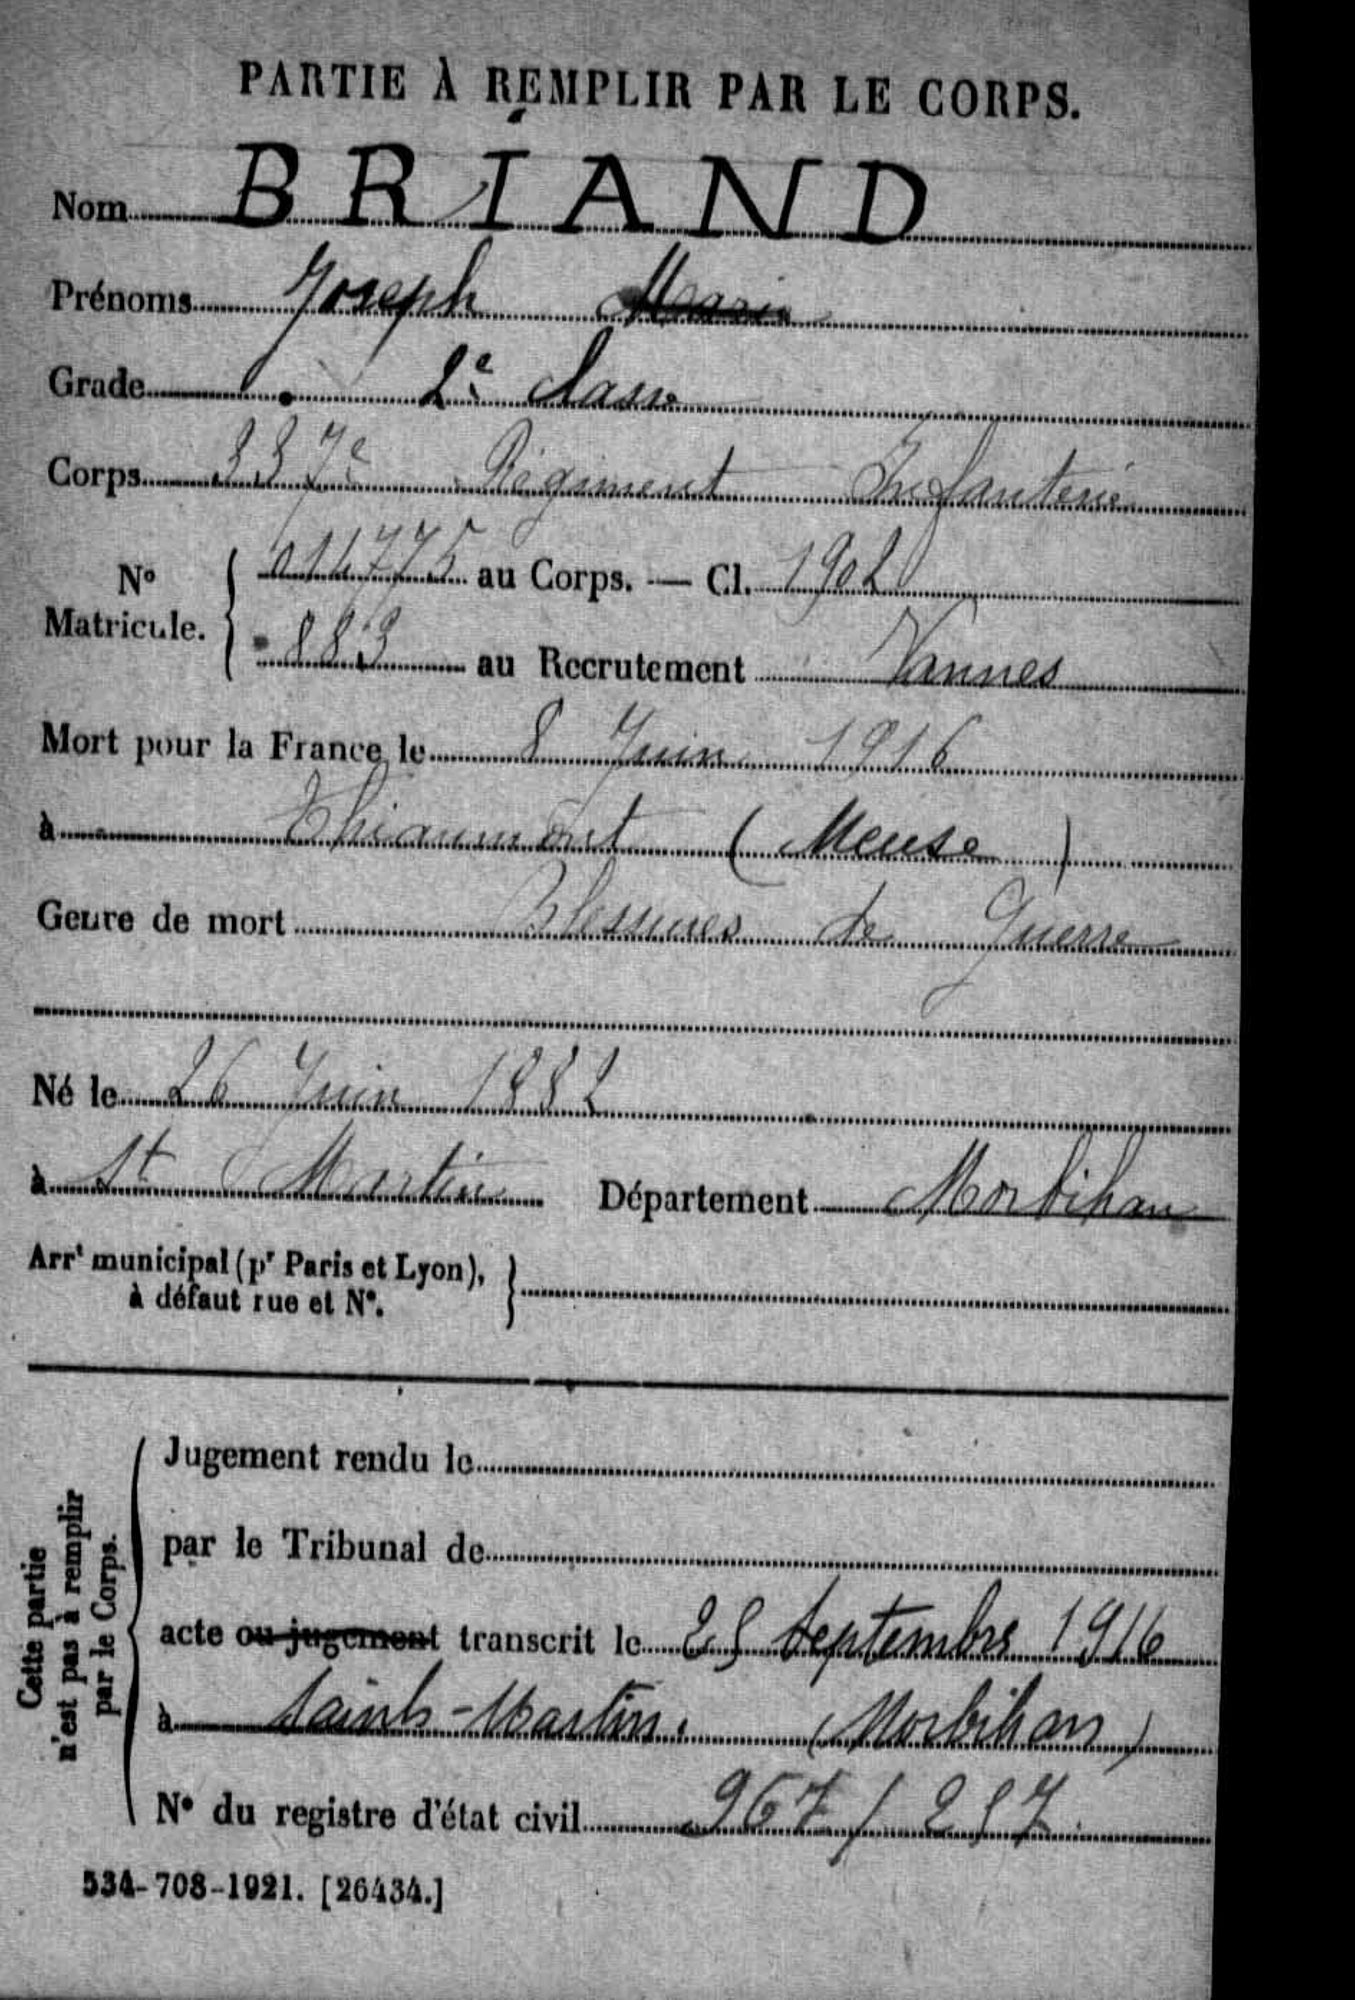 PARTIE À REMPLIR PAR LE CORPS.
Nom BRIAND
Prénoms Joseph Marie
Grade 2e classe
Corps 337e Régiment Infanterie
No Matricule. { 014775 au Corps. — Cl. 1902
883 au Recrutement Vannes
Mort pour la France le 8 Juin 1916
à Thiaumont (Meuse)
Genre de mort Blessures de Guerre
Né le 26 Juin 1882
à St Martin Département Morbihan
Arrt municipal (pr Paris et Lyon), }
à défaut rue et No.
Cette partie
n'est pas à remplir
par le Corps.
Jugement rendu le
par le Tribunal de
acte ou jugement transcrit le 25 Septembre 1916
à Saint-Martin. (Morbihan)
No du registre d'état civil 967/257.
534-708-1921. [26434.]